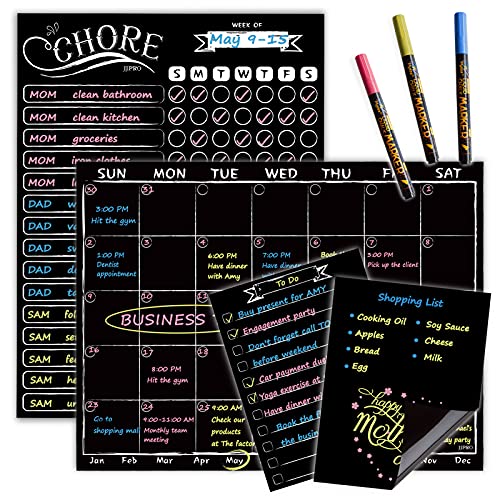 CHORE
JJPRO
WEEK OF
May 9-15
S M T W T F S
MOM clean bathroom
MOM clean kitchen
MOM groceries
MOM iron clothes
MOM
DAD
DAD
DAD
DAD
SAM
SAM
SAM
SAM
SUN MON TUE WED THU FRI SAT
30 31 1
3:00 PM
Hit the gym
2 3 4 5 6 7
1:00 PM
Dentist
appointment
6:00 PM
Have dinner
with Amy
7:00 PM
Have dinner
Book
3:30 PM
Pick up the client
9 10 11
BUSINESS
16 17 18
8:00 PM
Hit the gym
23 24 25
Go to
shopping mall
9:00-11:00 AM
Monthly team
meeting
9:00 AM
Check our
products
at The factory
Jan Feb Mar Apr May Nov Dec
To Do
Buy present for AMY
Engagement party
Don't forget call TO
before weekend
Car payment due
Yoga exercise at
Have dinner with
Book the
the business
Shopping List
Cooking Oil
Apples
Bread
Egg
Soy Sauce
Cheese
Milk
happy
Moth
party
JJPRO
MARKER
MARKER
MARKER